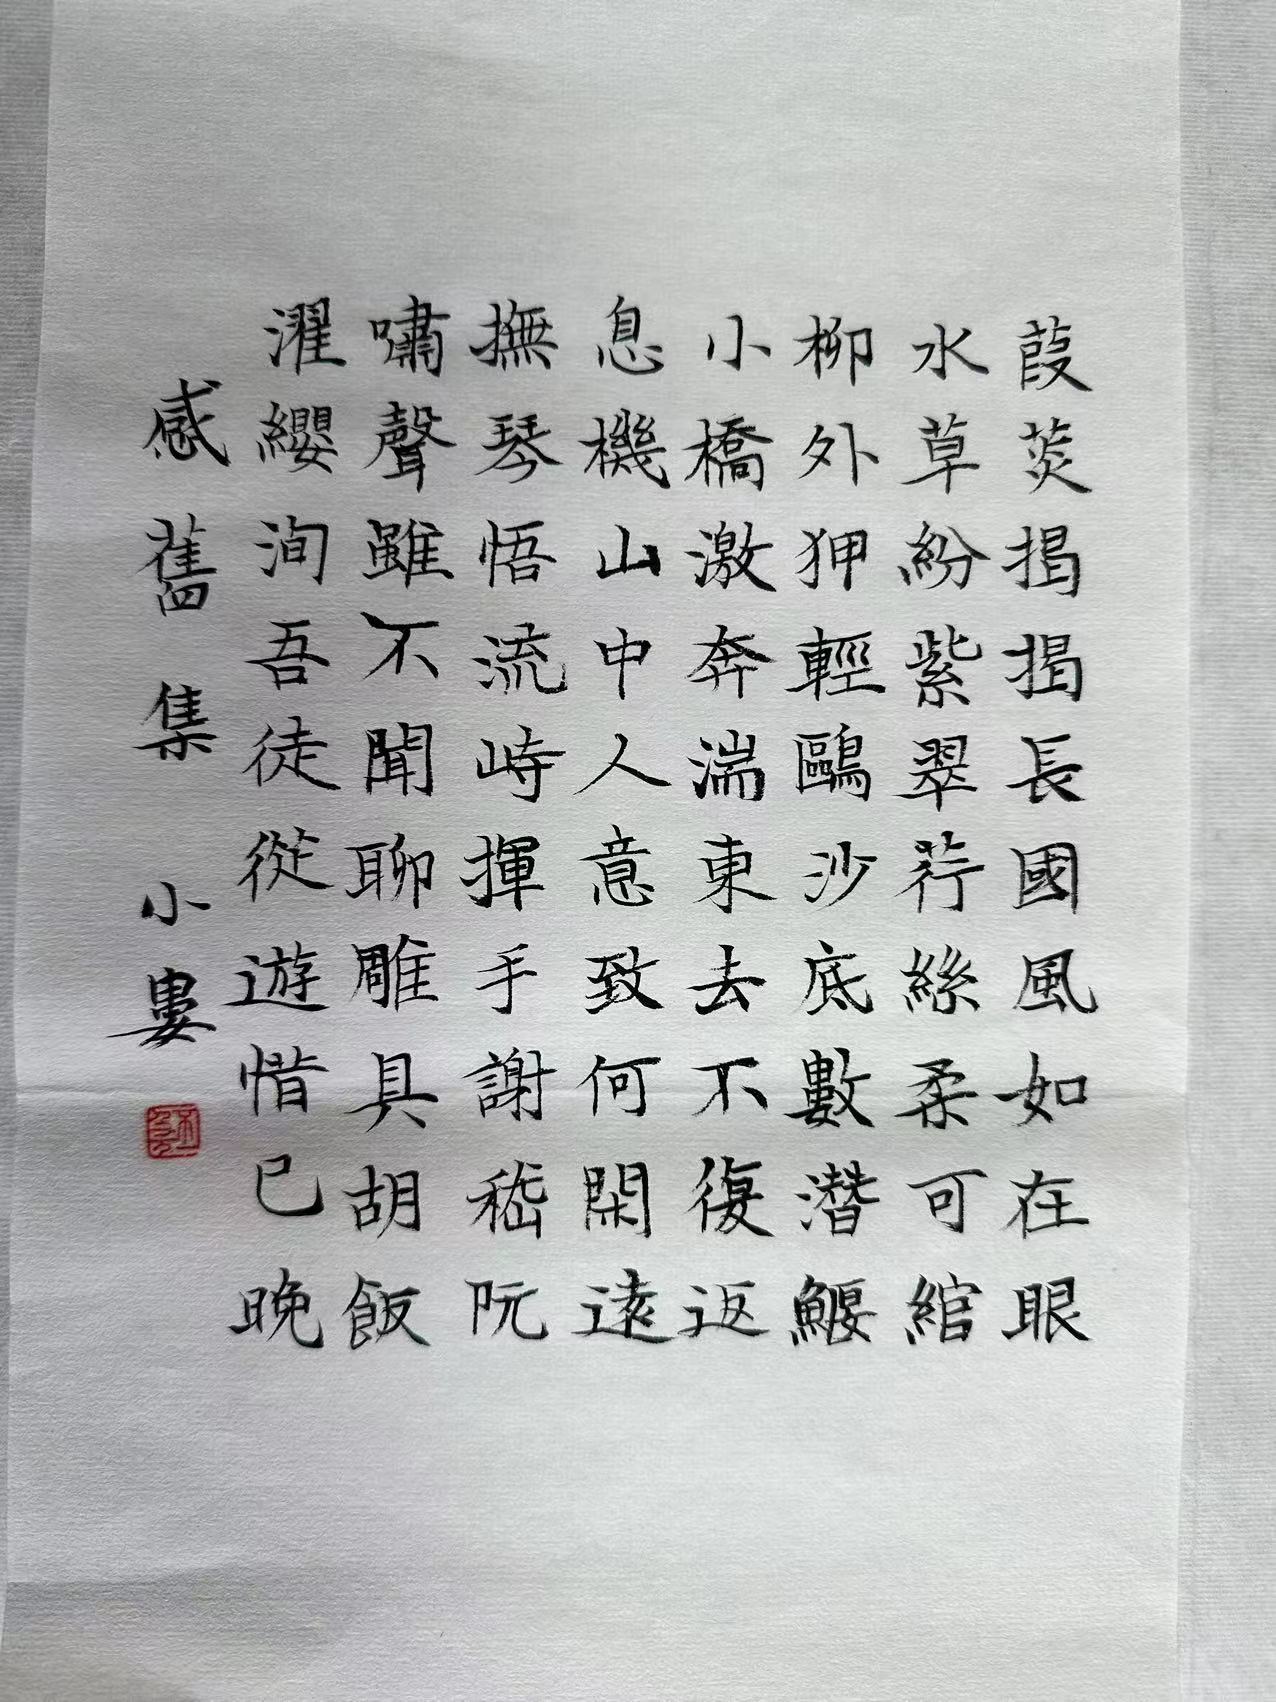 葭菼揭揭長國風如在眼
水草紛紫翠荇絲柔可綰
柳外狎輕鷗沙底數潛鰋
小橋激奔湍東去不復返
息機山中人意致何閑遠
撫琴悟流峙揮手謝嵇阮
嘯聲雖不聞聊雕具胡飯
濯纓洵吾徒從遊惜已晚
感舊集 小婁